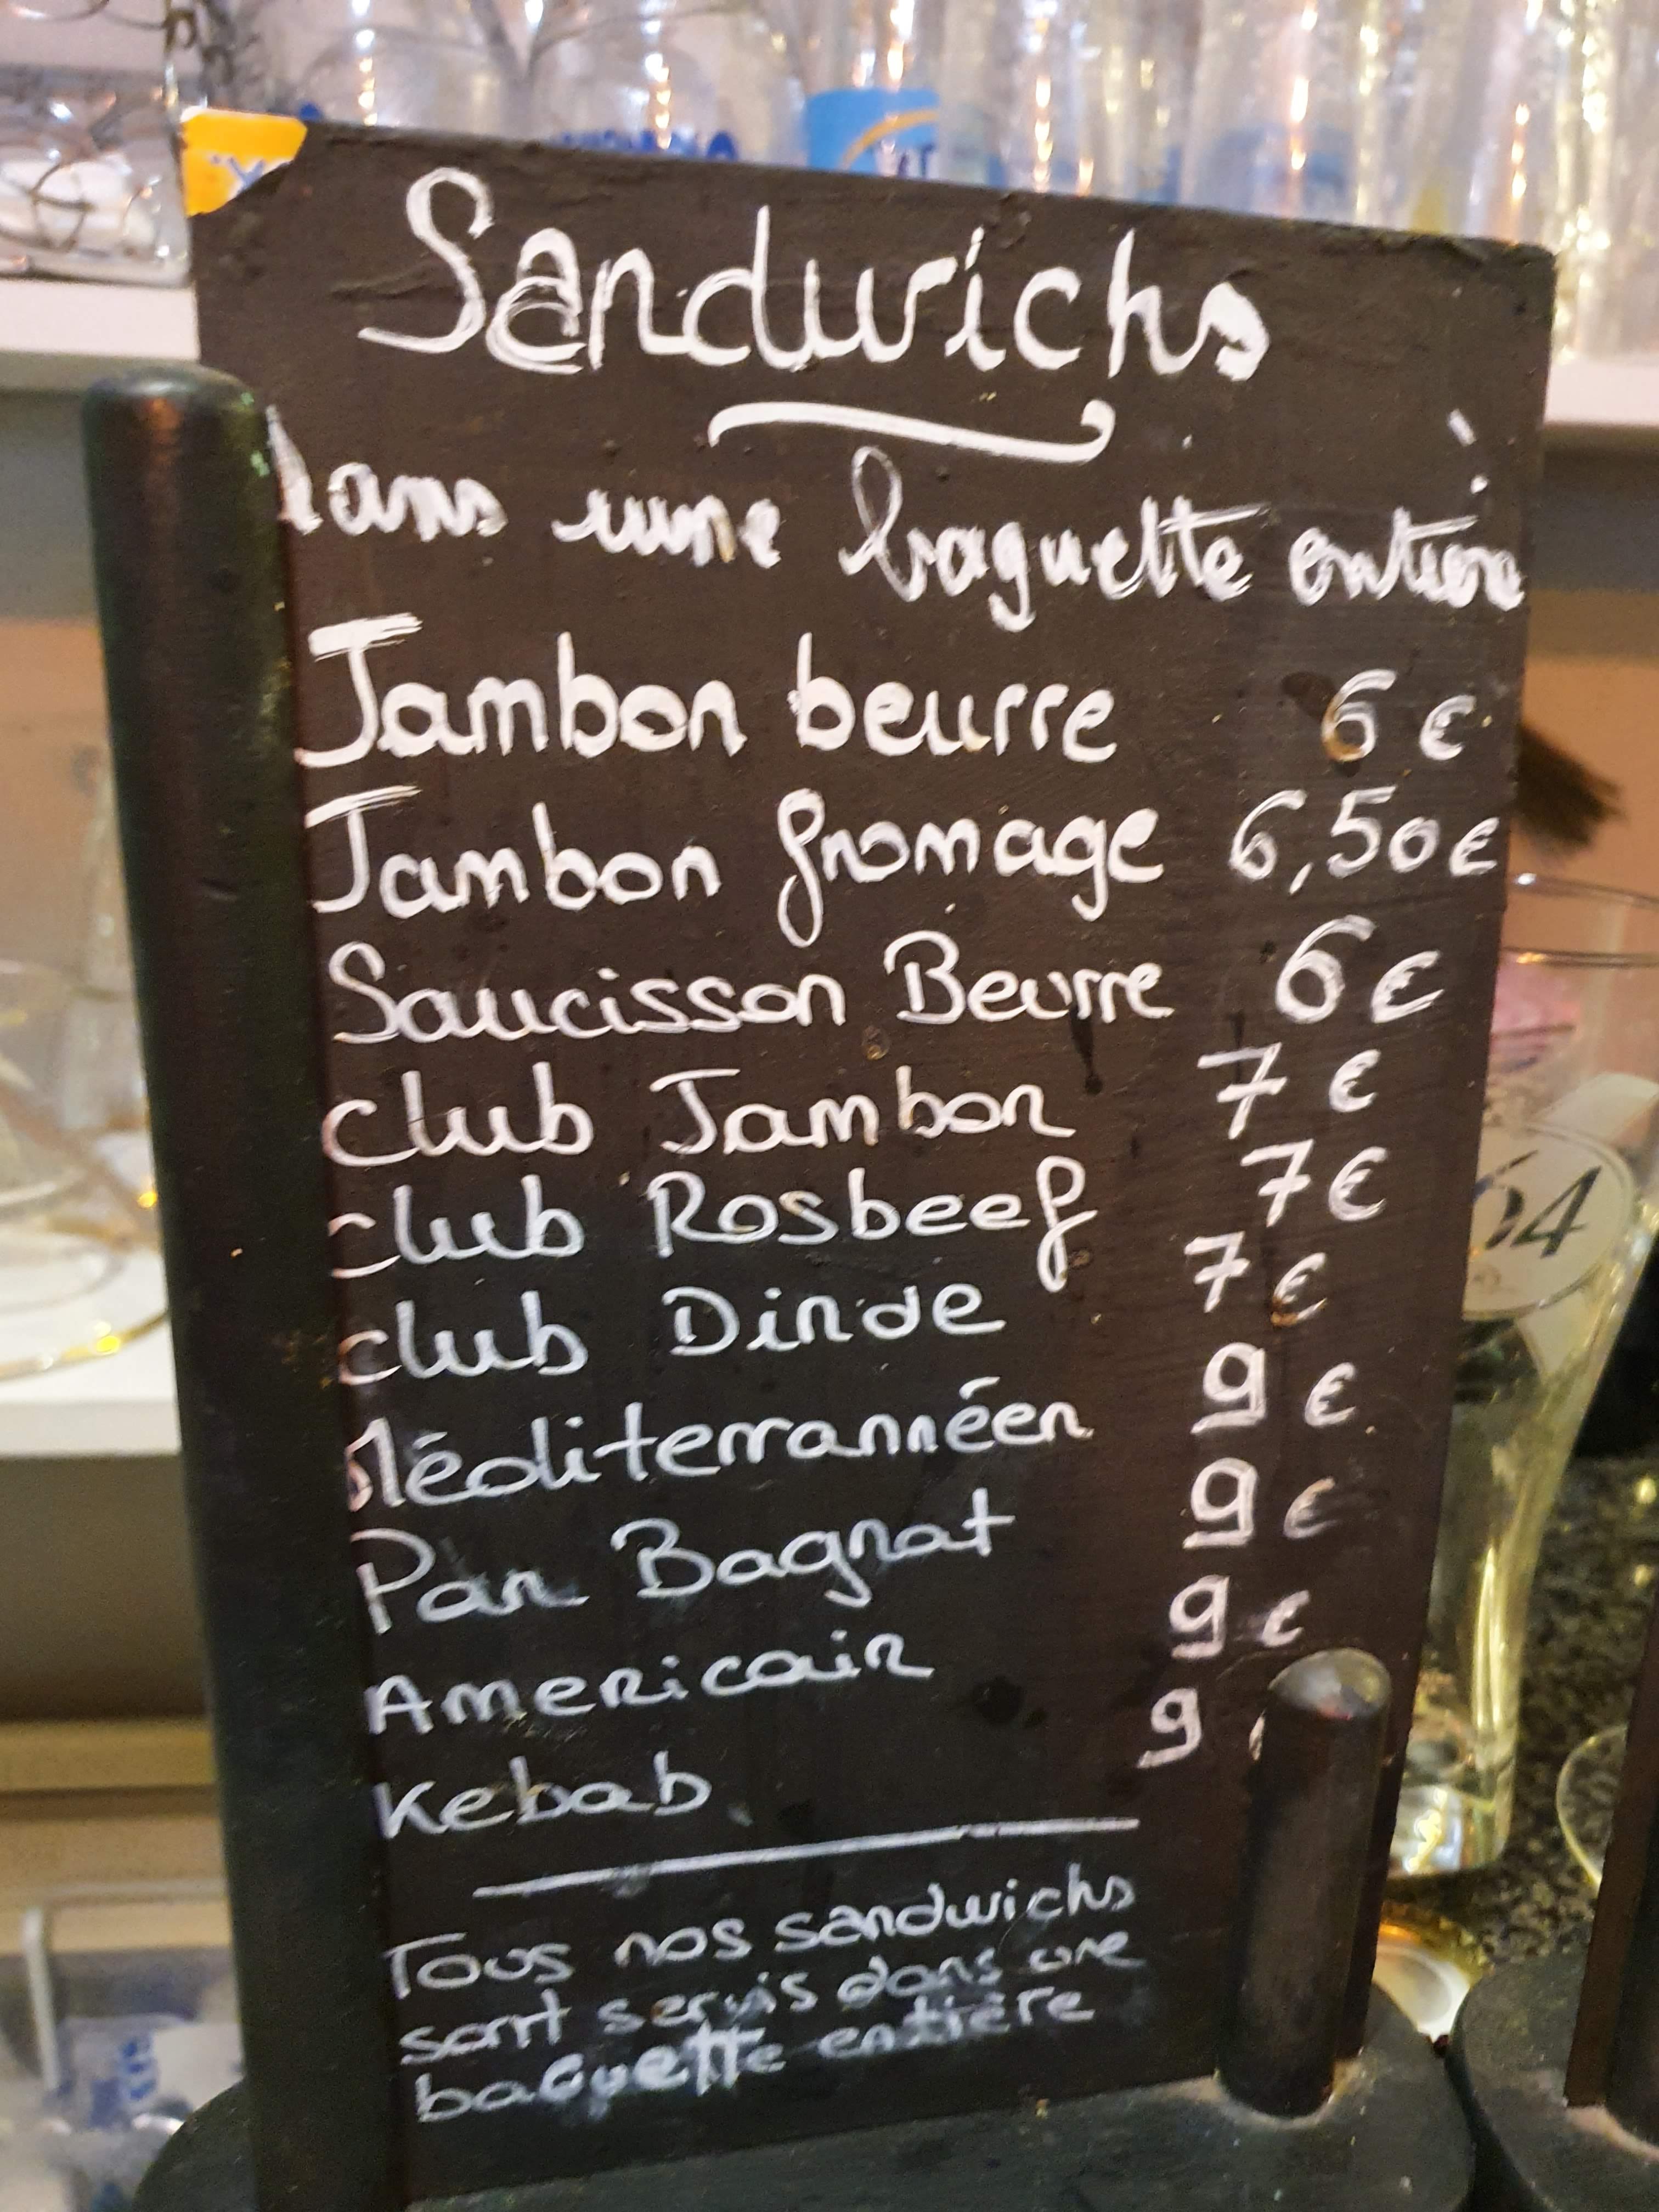 Sandwichs
dans une baguette entière
Jambon beurre 6 €
Jambon fromage 6,50 €
Saucisson Beurre 6 €
Club Jambon 7 €
Club Rosbeef 7 €
Club Dinde 7 €
Méditerrannéen 9 €
Pan Bagnat 9 €
Americain 9 €
Kebab 9 €
Tous nos sandwichs
sont servis dans une
baguette entière
64